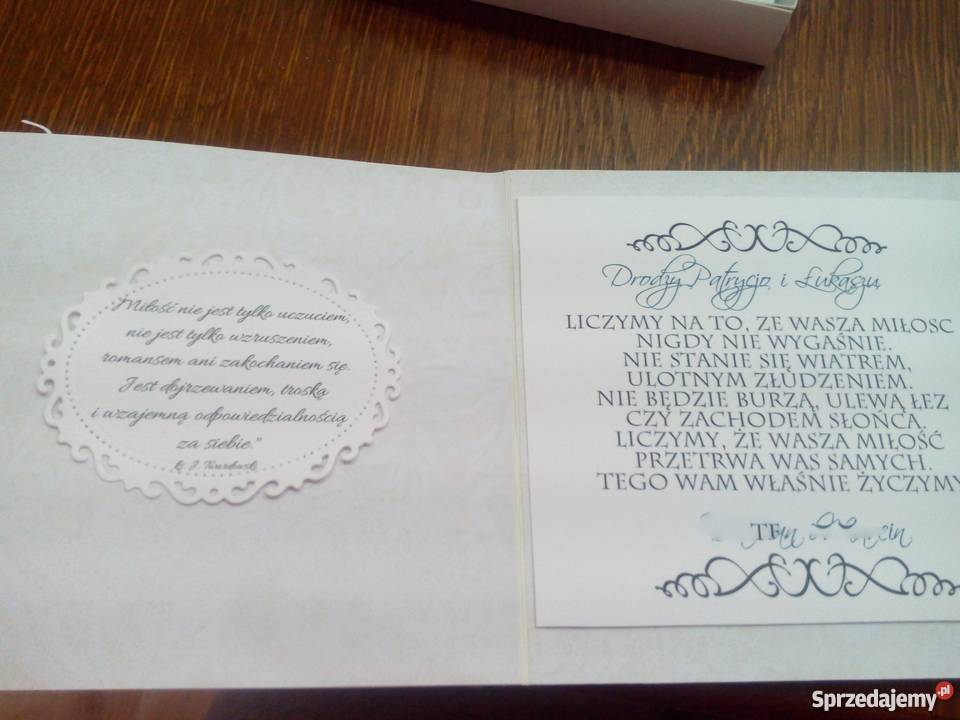 Miłość nie jest tylko uczuciem,
nie jest tylko wzruszeniem,
romansem ani zakochaniem się.
Jest dojrzewaniem, troską
i wzajemną odpowiedzialnością
za siebie."
Drodzy Patrycjo i Łukaszu
LICZYMY NA TO, ZE WASZA MIŁOSC
NIGDY NIE WYGAŚNIE.
NIE STANIE SIĘ WIATREM,
ULOTNYM ZŁUDZENIEM.
NIE BĘDZIE BURZĄ, ULEWĄ ŁEZ
CZY ZACHODEM SŁOŃCA.
LICZYMY, ŻE WASZA MIŁOŚĆ
PRZETRWA WAS SAMYCH.
TEGO WAM WŁAŚNIE ŻYCZYMY
Sprzedajemy.pl